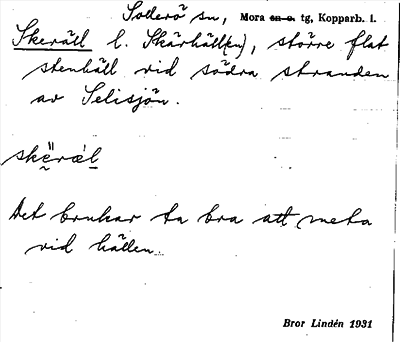 Sollerö sn, Mora sn o. tg, Kopparb. l.
Skeräll l. Skärhäll(en), större flat
stenhäll vid södra stranden
av Selisjön.
skë̈ræ̀l
Det brukar ta bra att meta
vid hällen.
Bror Lindén 1931